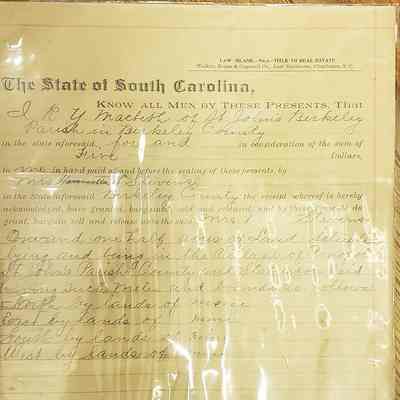 LAW BLANK.—No. 1.—TITLE TO REAL ESTATE.
Walker, Evans & Cogswell Co., Law Stationers, Charleston, S. C.
The State of South Carolina,
KNOW ALL MEN BY THESE PRESENTS, That
I R Y Macbeth of St Johns Berkeley
Parish in Berkeley County
in the state aforesaid, for and in consideration of the sum of
Five Dollars,
to me in hand paid at and before the sealing of these presents, by
Mrs
in the State aforesaid Berkeley County the receipt whereof is hereby
acknowledged, have granted, bargained, sold and released, and by these presents do
grant, bargain sell and release unto the said Mrs
One and one half acres of Land situate
lying and being in the
St Johns Parish County and State aforesaid
and bounded as follows
North by lands of
East by lands of
South by lands of
West by lands of